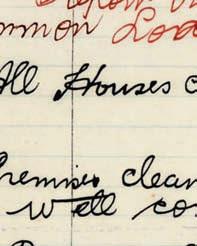 mmon Lod
All Houses c
Premises clean
well co